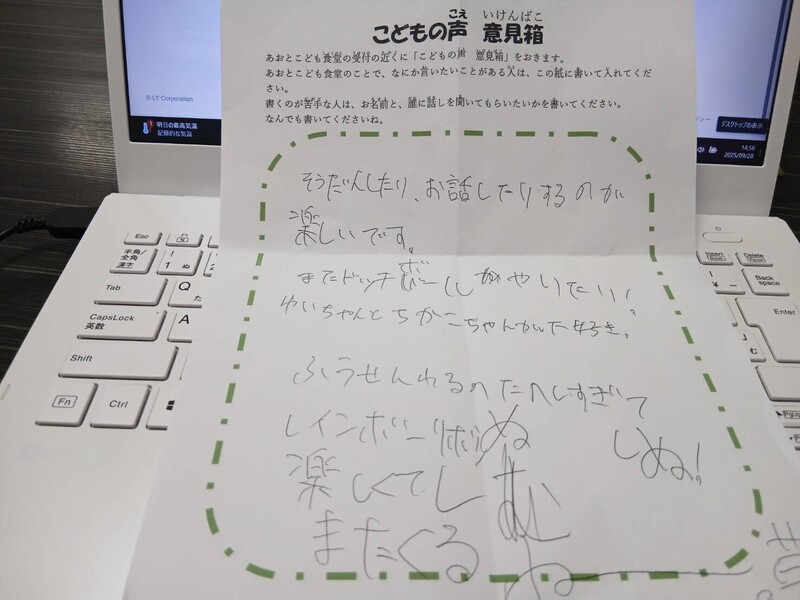 こどもの声 意見箱
あおとこども食堂の受付の近くに「こどもの声 意見箱」をおきます。
あおとこども食堂のことで、なにか言いたいことがある人は、この紙に書いて入れてくだ
さい。
書くのが苦手な人は、お名前と、誰に話しを聞いてもらいたいかを書いてください。
なんでも書いてくださいね。
そうだんしたり、お話したりするのが
楽しいです。
またドッチボールがやりたい!
ゆいちゃんとちかこちゃんがいた好き。
ふうせんわるのたのしすぎて
しぬ!
レインボーリボ
楽しくてしむ
またくる
© LY Corporation
明日の最高気温
記録的な気温
デスクトップの表示
14:56
2025/09/28
Esc
半角/
全角
漢字
!
1 ぬ
Tab
Q
た
CapsLock
英数
A
Shift
Fn
Ctrl
Insert
Delete
Back
space
Enter